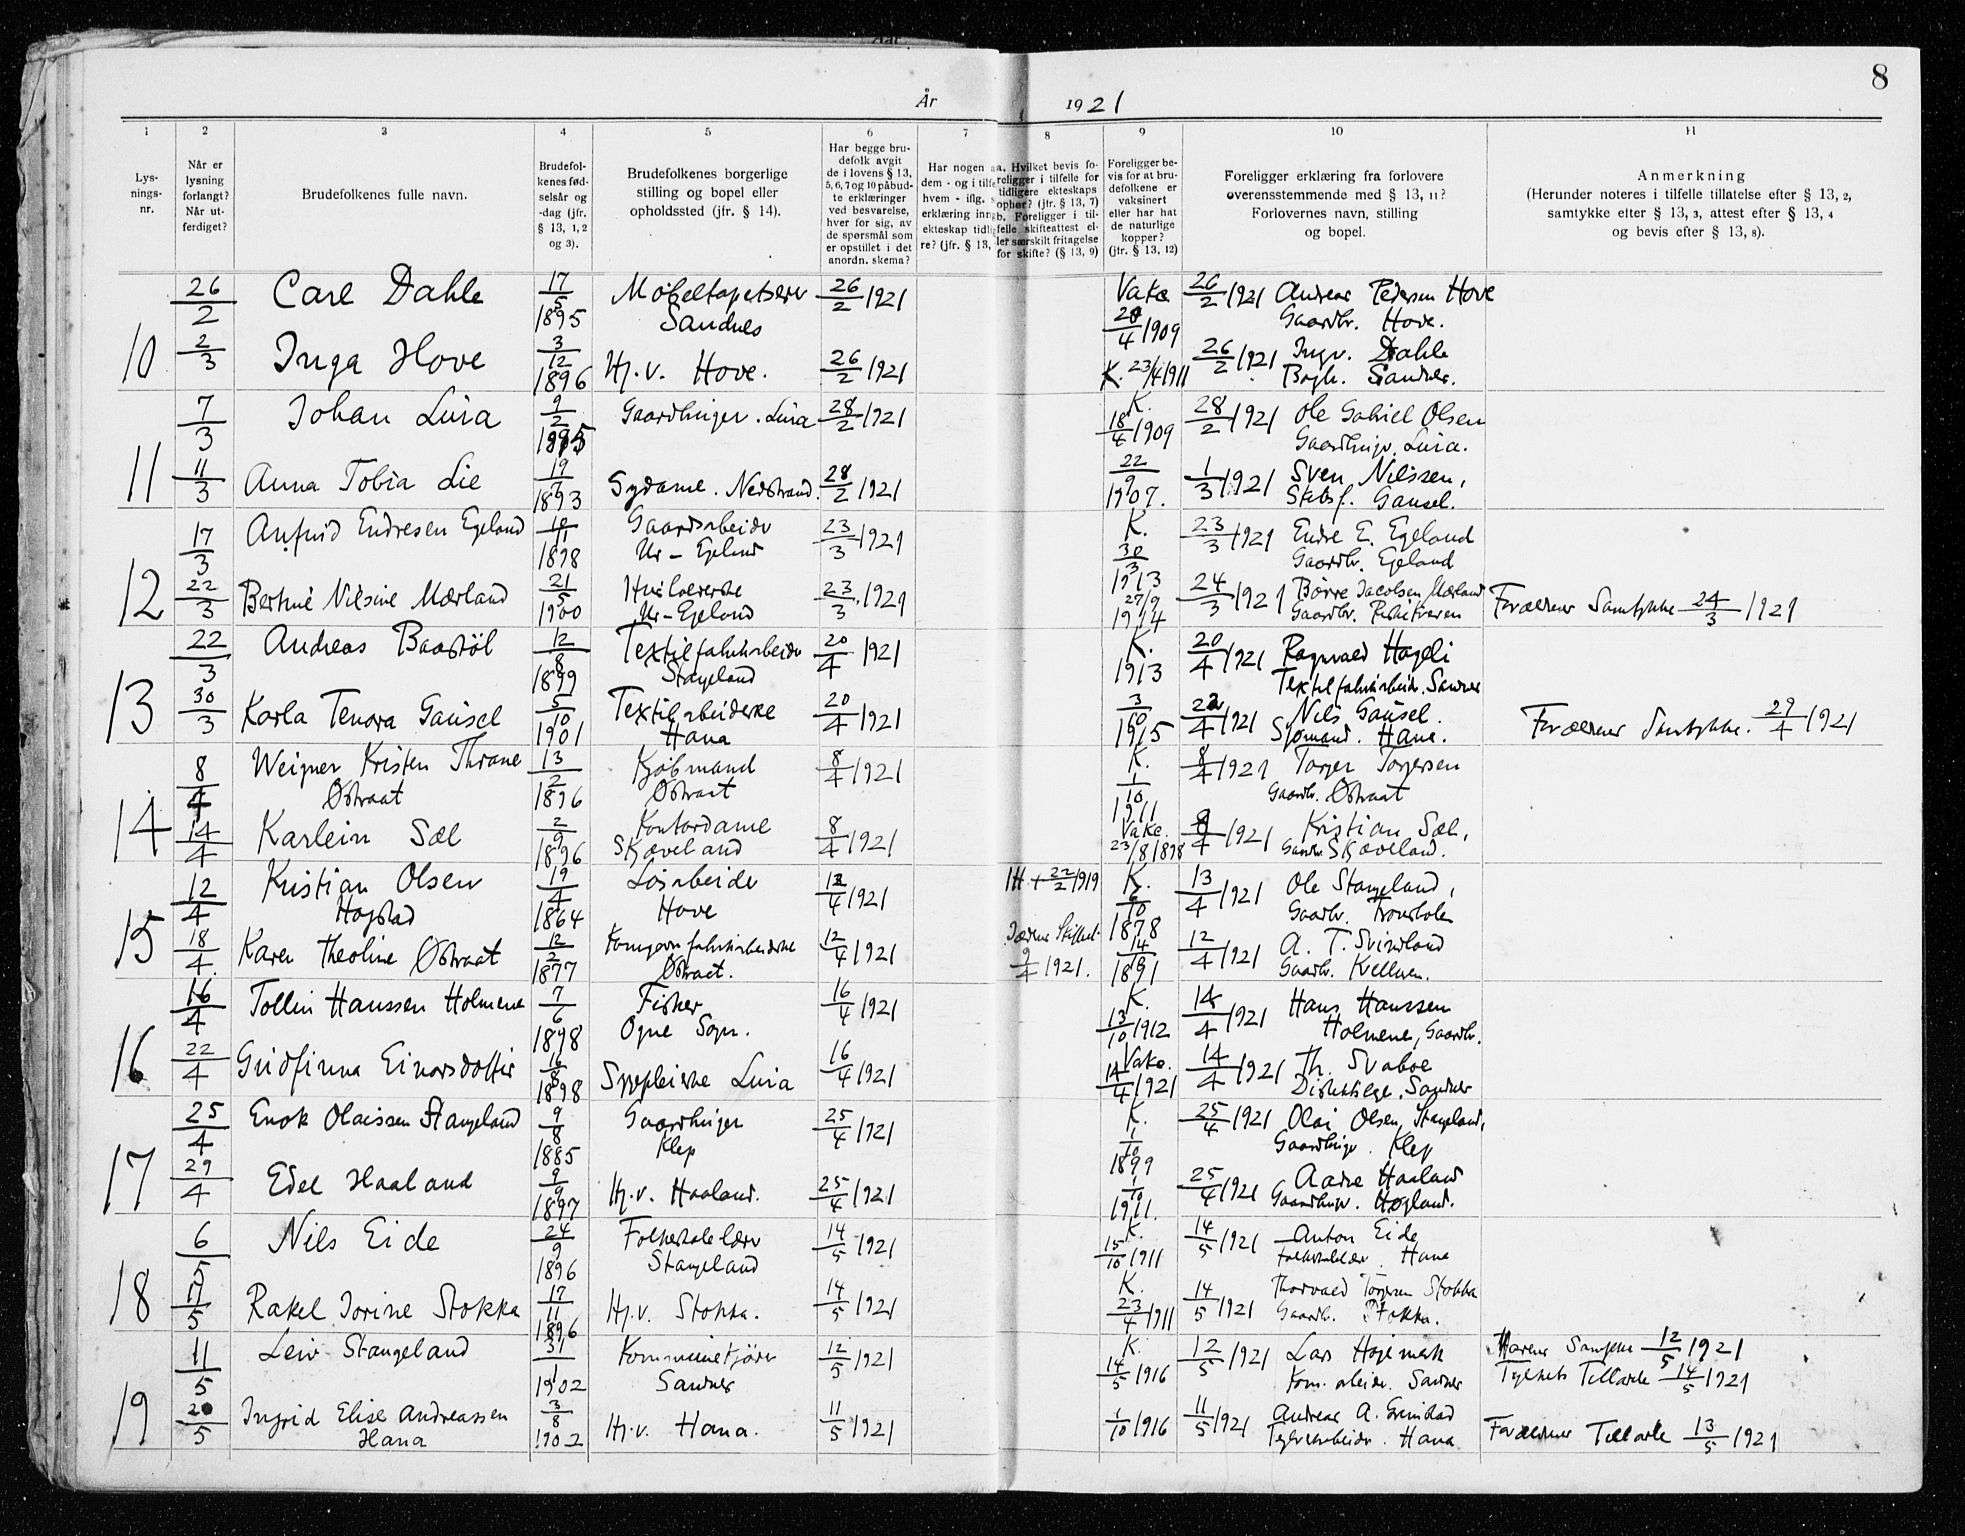 8
År 1921
1 2 3 4 5 6 7 8 9 10 11
Lys-
nings-
nr.
Når er
lysning
forlangt?
Når ut-
ferdiget?
Brudefolkenes fulle navn.
Brudefol-
kenes fød-
selsår og
-dag (jfr.
§ 13, 1, 2
og 3).
Brudefolkenes borgerlige
stilling og bopel eller
opholdssted (jfr. § 14).
Har begge bru-
defolk avgit
de i lovens § 13,
5, 6, 7 og 10 påbud-
te erklæringer
ved besvarelse,
hver for sig, av
de spørsmål som
er opstillet i det
anordn. skema?
Har nogen a
dem - og i tilfe
hvem - iflg.
erklæring inng
ekteskap tidlig
re? (jfr. § 13,
a. Hvilket bevis fo-
religger i tilfelle for
tidligere ekteskaps
ophør? (jfr. § 13, 7)
b. Foreligger i til-
felle skifteattest el-
ler særskilt fritagelse
for skifte? (§ 13, 9)
Foreligger be-
vis for at bru-
defolkene er
vaksinert
eller har hat
de naturlige
kopper?
(jfr. § 13, 12)
Foreligger erklæring fra forlovere
overensstemmende med § 13, 11?
Forlovernes navn, stilling
og bopel.
Anmerkning
(Herunder noteres i tilfelle tillatelse efter § 13, 2,
samtykke efter § 13, 3, attest efter § 13, 4
og bevis efter § 13, 8).
26/2 Carl Dahle 17/5 1895 Møbeltapetserer Sandnes 26/2 1921 Vakc 4 1909 26/2 1921 Andreas Pedersen Hove
Gaardbr. Hove.
10 2/3 Inga Hove 3/12 1896 Hj.v. Hove. 26/2 1921 K. 23/4 1911 26/2 1921 Ingv. Dahle
Sandnes.
7/3 Johan Lura 9/2 Gaardbruger. Lura 28/2 1921 K. 18/4 1909 28/2 1921 Ole Gabriel Olsen
Gaardbruger. Lura.
11 11/3 Anna Tobia Lie 19 1893 Sydame. Nedstrand. 28/2 1921 22/9 1907. 1/3 1921 Sven Nilssen,
Skibsf. Gausel.
17/3 Endresen Egeland 1898 Gaardsarbeider
Ur-Egeland 23/3 1921 K. 30/3 1913 23/3 1921 Endre E. Egeland
Gaardbr. Egeland
12 22/3 Nilsine Mærland 21/5 1900
Ur-Egeland 23/3 1921 27/9 1914 24/3 1921 Børre Jacobsen Mærland
Gaardbr. Forældrenes Samtykke 24/3 1921
22/3 Andreas Baastøl 12/8 1899 Textilfabrikarbeider
Stangeland 20/4 1921 K. 1913 20/4 1921 Ragnvald Hageli
Textilfabrikarbeider. Sandnes
13 30/3 Karla Tenora Gausel 5/10 1901 Textilarbeiderske
Hana 20/4 1921 3/10 1915 4 1921 Nils Gausel.
Sjømand. Hana. Forældrenes Samtykke. 29/4 1921
8/4 Weigner Kristen Thrane
Østraat 13/2 1896 Kjøbmand
Østraat 8/4 1921 K. 1/10 1911 8/4 1921 Torger Torgersen
Gaardbr. Østraat
14 14/4 Karlein Sæl 2/9 1896 Kontordame
Skjæveland 8/4 1921 Vakc. 23/8 1898 4 1921 Kristian Sæl,
Gaardbr. Skjæveland.
12/4 Kristian Olsen
Hogstad 19/4 1864 Løsarbeider
Hove 4 1921 22/2 1919 K. 6/10 1878 13/4 1921 Ole Stangeland,
Gaardbr.
15 18/4 Karen Theoline Østraat 12/2 1877
Østraat. 12/4 1921 Jæderens Skifteret 9/4 1921. 14 1891 12/4 1921 A. T. Svindland
Gaardbr.
16/4 Tollin Hanssen Holmene 7/6 1898 Fisker
Ogne Sogn. 16/4 1921 K. 13/10 1912 14/4 1921 Hans Hanssen
Holmene, Gaardbr.
16 22/4 Gudfinna Einarsdottir 16/8 1898 Sygepleierske Lura 16/4 1921 Vakc. 14/4 1921 14/4 1921 Th. Svaboe
Distriktslæge. Sandnes
25/4 Enok Olaissen Stangeland 9/8 1885 Gaardbruger
Klep 25/4 1921 K. 1/10 1899 25/4 1921 Olai Olsen Stangeland,
Gaardbruger Klep
17 29/4 Edel Haaland 9/9 1897 Hj.v. Haaland. 25/4 1921 1/10 1911. 25/4 1921 Aadne Haaland
Gaardbruger.
6/5 Nils Eide 24/9 1896 Folkeskolelærer
Stangeland 14/5 1921 K. 15/10 1911 14/5 1921 Anton Eide
Hana
18 17/5 Rakel Jorine Stokka 17/11 1896 Hj.v. Stokka. 14/5 1921 K. 23/4 1911 14/5 1921 Thorvald Torgersen Stokka
Gaardbr. Stokka.
11/5 Leiv Stangeland 31/1 1902
Sandnes 12/5 1921 K. 14/5 1916 12/5 1921 Lars
Kom. arbeider. Sandnes Samtykke 12/5 1921
14/5 1921
19 20/5 Ingrid Elise Andreassen
Hana 3/8 1902 Hj.v. Hana. 11/5 1921 1/10 1916 11/5 1921 Andreas A. Grimstad
Hana Forældrenes 13/5 1921